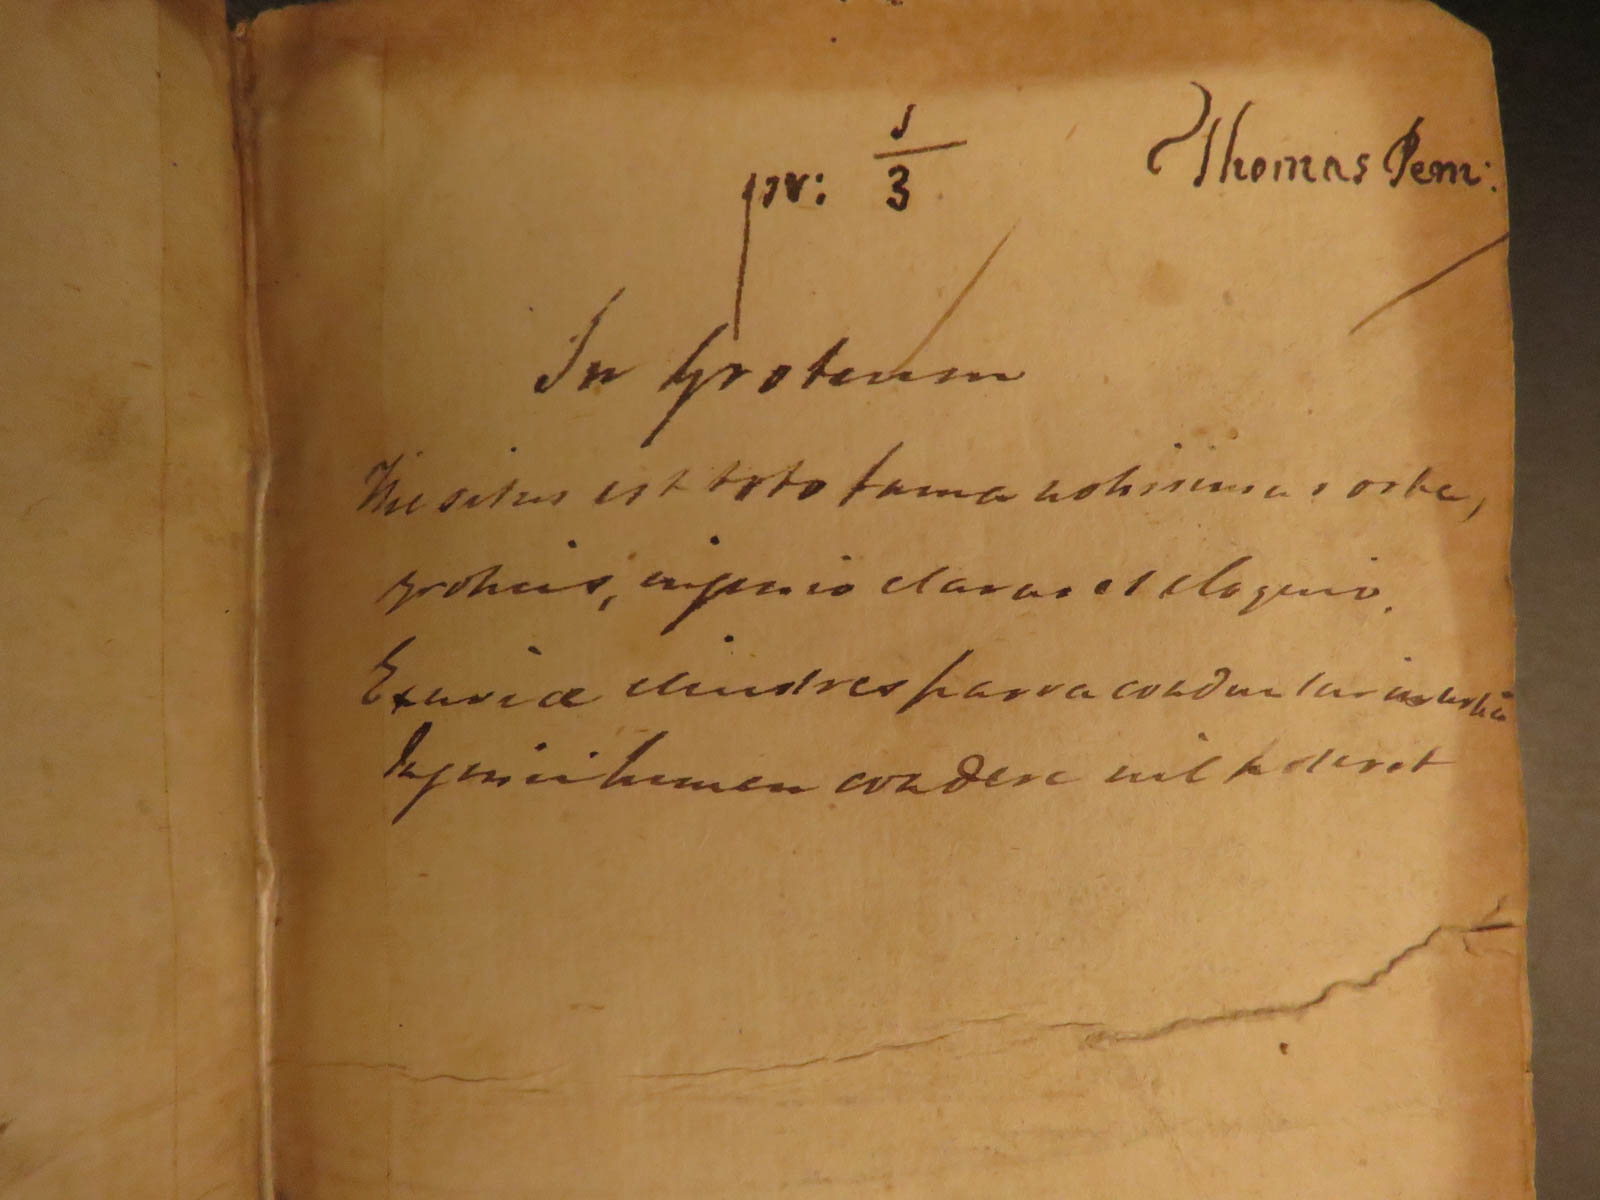 Thomas Pem:
pr: 1/3
In Grotium
Hic situs est toto fama notissimus orbe,
grotius, ingenio clarus et eloquio.
Exuviæ cineres parva conduntur in
Ingenii lumen condere nil poterat